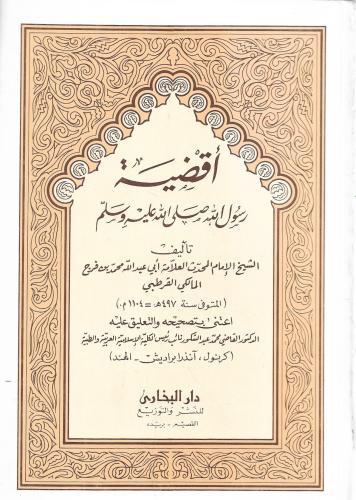 أقضية
رسول الله صلى الله عليه وسلم
تأليف
الشيخ الإمام المحدث العلامة أبي عبد الله محمد بن فرج
المالكي القرطبي
(المتوفى سنة ٤٩٧هـ = ١١٠٤م)
اعتنى بتصحيحه والتعليق عليه
الدكتور القاضي محمد عبد الشكور نائب رئيس الكلية الإسلامية العربية والطبية
(كرنول، آنذرا براديش - الهند)
دار البخاري
للنشر والتوزيع
القصيم - بريدة